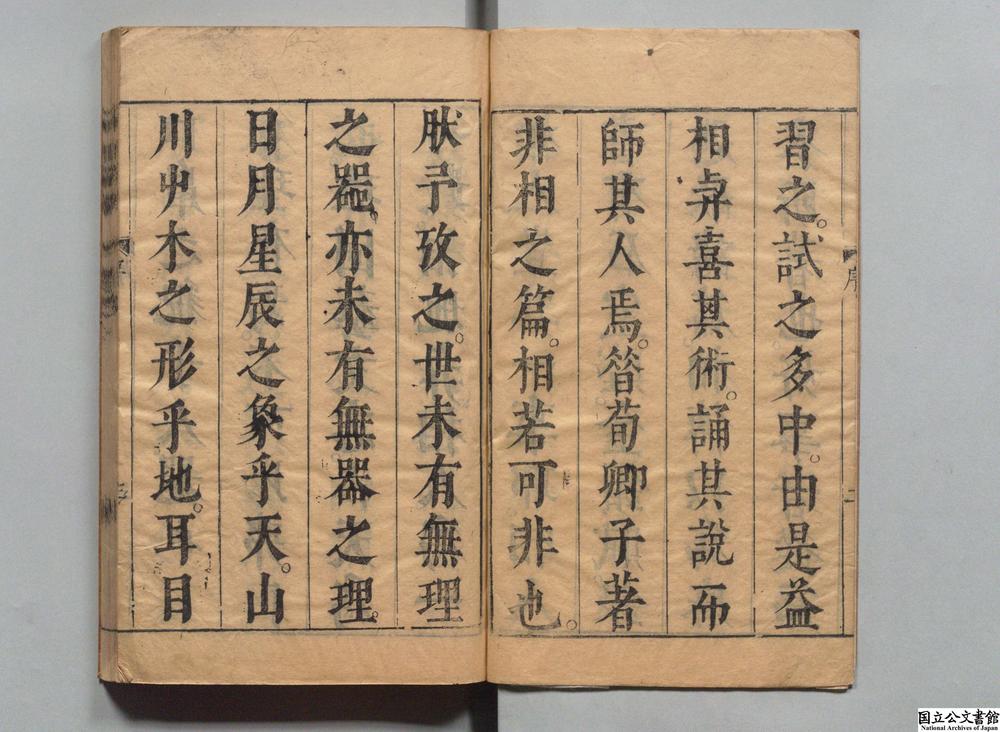 習之。試之多中。由是益
相與喜其術。誦其說而
師其人焉。昔荀卿子著
非相之篇。相若可非也。
肰予攷之。世未有無理
之器。亦未有無器之理。
日月星辰之象乎天。山
川艸木之形乎地。耳目
序
二
国立公文書館
National Archives of Japan